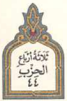 ثلاثة أرباع
الحزب
٤٤